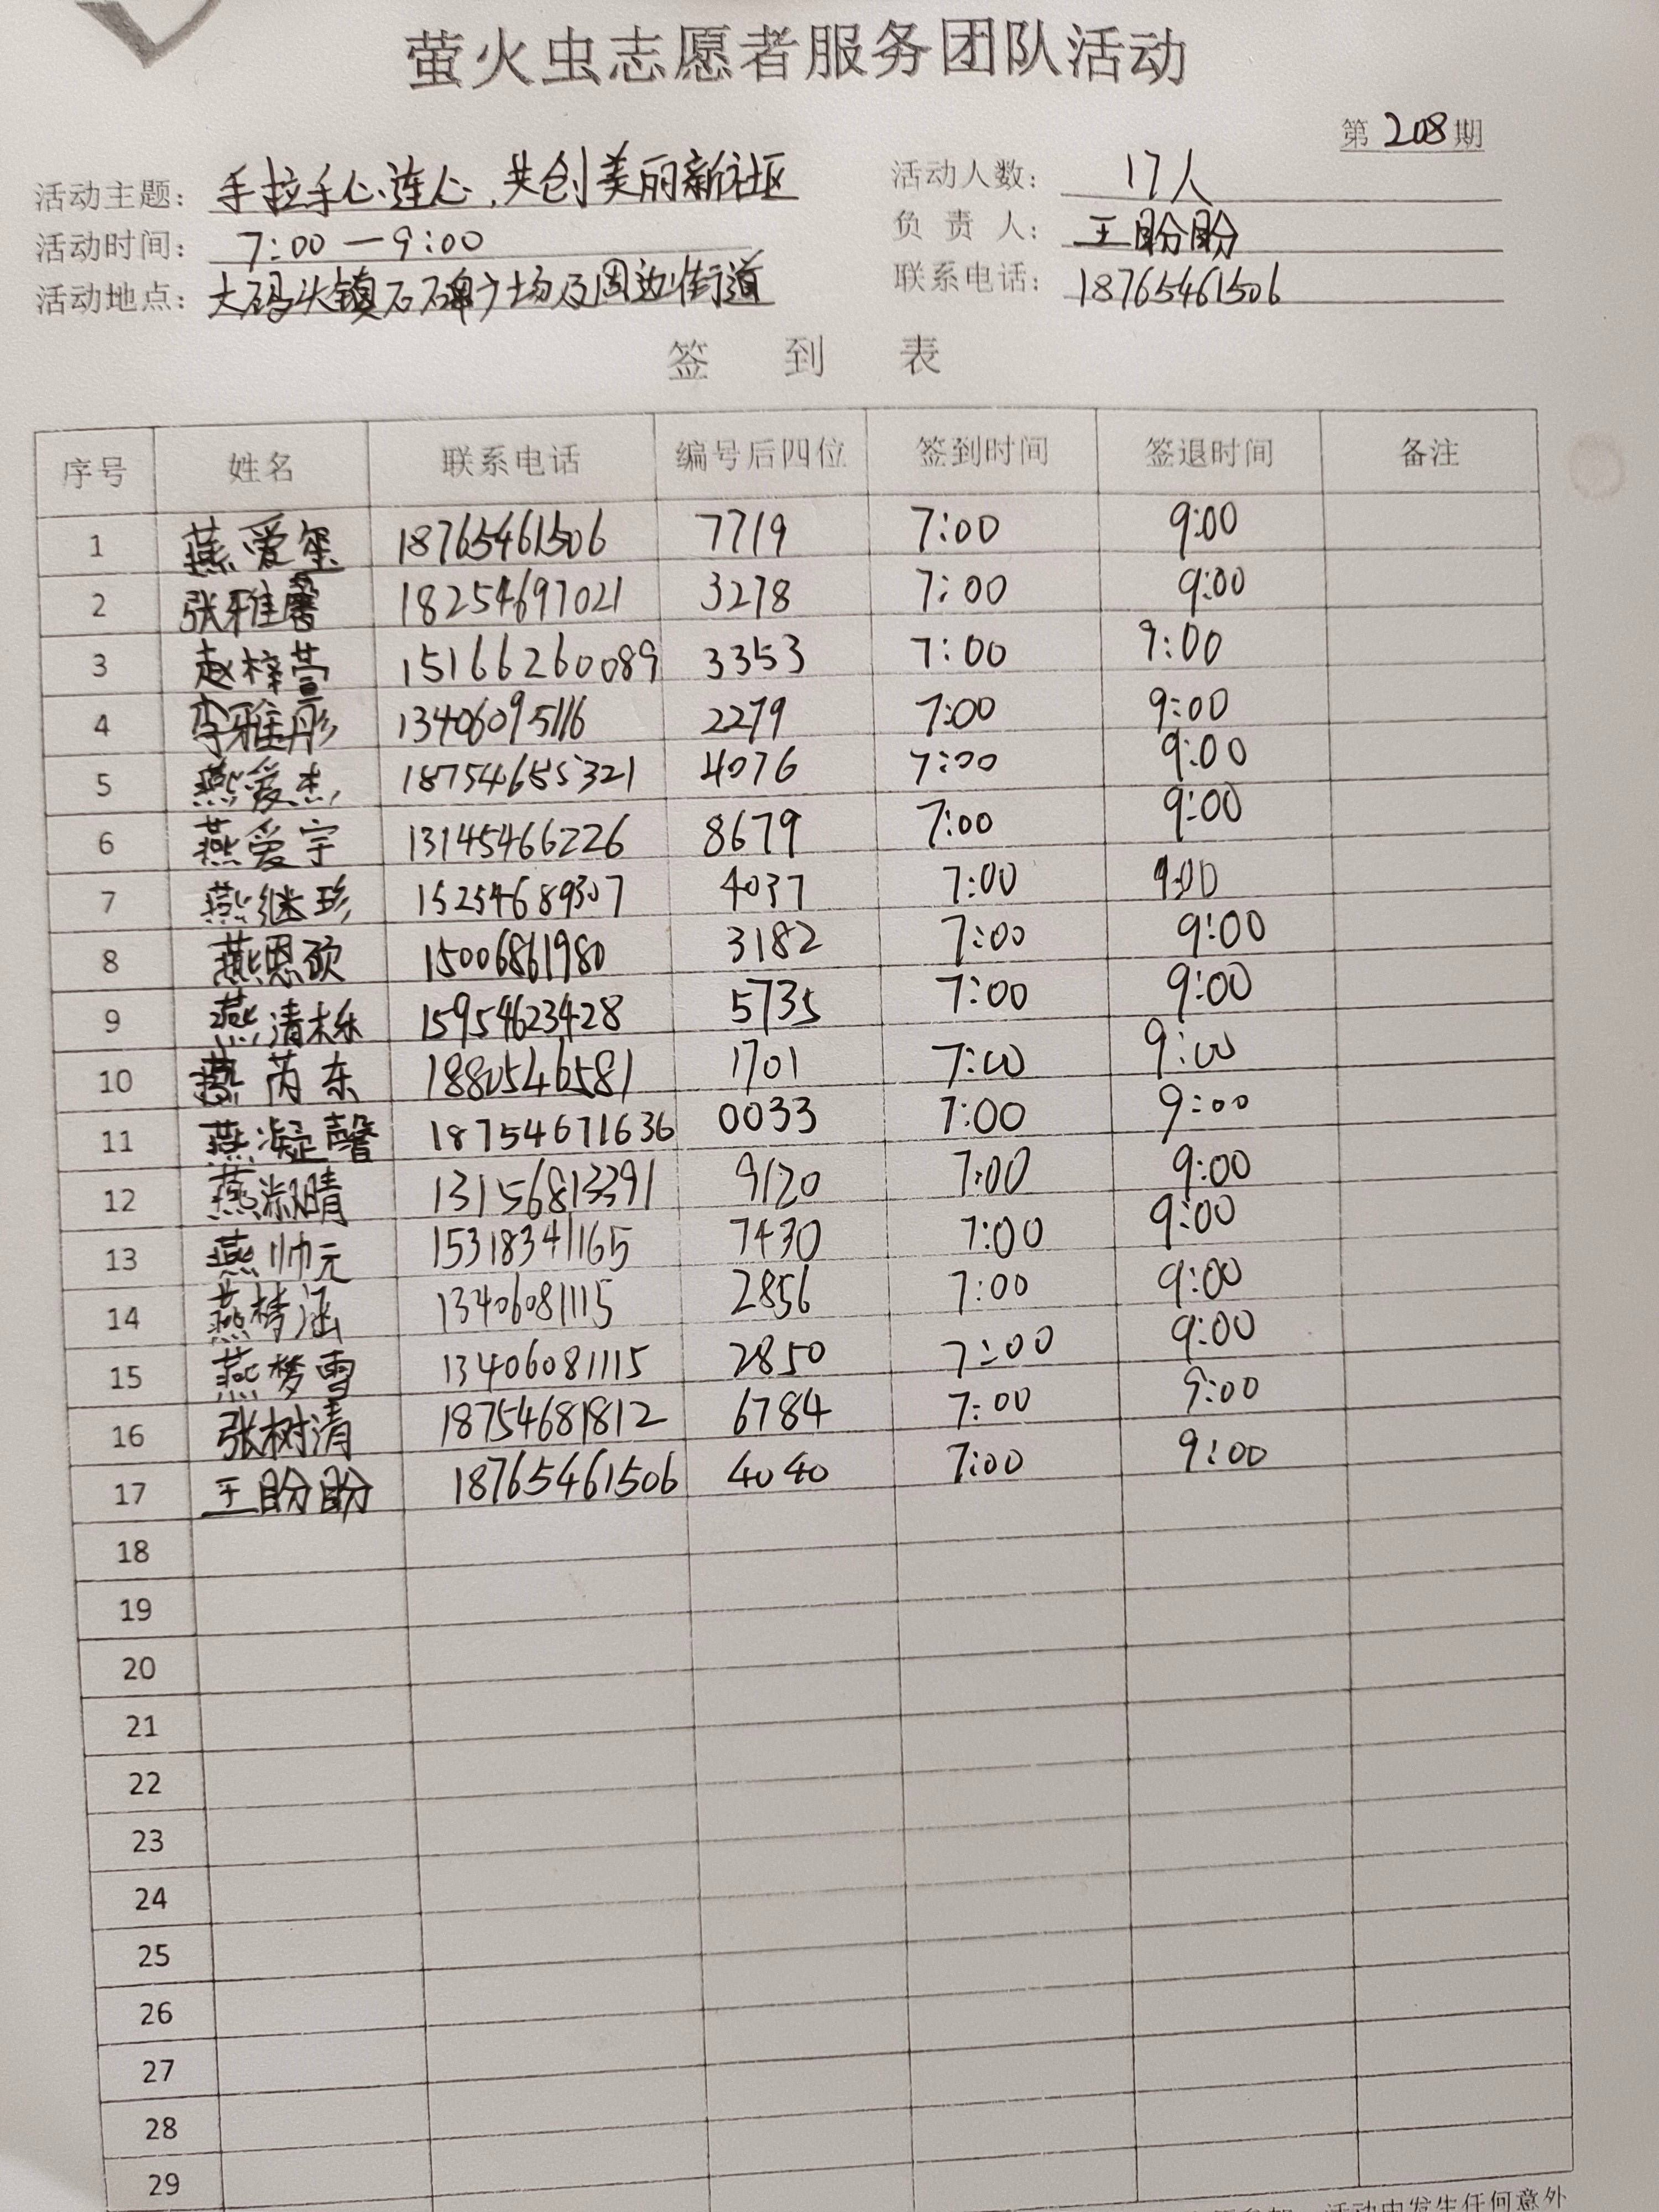 萤火虫志愿者服务团队活动
第 208 期
活动主题: 手拉手心连心,共创美丽新社区 活动人数: 17人
活动时间: 7:00—9:00 负责人: 王盼盼
活动地点: 大码头镇石碑广场及周边街道 联系电话: 18765461506
签到表
序号 姓名 联系电话 编号后四位 签到时间 签退时间 备注
1 燕爱玺 18765461506 7719 7:00 9:00
2 张雅馨 18254697021 3278 7:00 9:00
3 赵梓萱 15166260089 3353 7:00 9:00
4 李雅彤 13406095116 2279 7:00 9:00
5 燕爱杰 18754685321 4076 7:00 9:00
6 燕爱宇 13145466226 8679 7:00 9:00
7 燕继珍 15254689307 4037 7:00 9:00
8 燕恩硕 15006861980 3182 7:00 9:00
9 燕清栎 15954623428 5735 7:00 9:00
10 燕芮东 1880546581 1701 7:00 9:00
11 燕凝馨 18754671636 0033 7:00 9:00
12 燕淑晴 13156813391 9120 7:00 9:00
13 燕帅元 15318341165 7430 7:00 9:00
14 燕梦涵 13406081115 2856 7:00 9:00
15 燕梦雪 13406081115 2850 7:00 9:00
16 张树清 18754681812 6784 7:00 9:00
17 王盼盼 18765461506 4040 7:00 9:00
18
19
20
21
22
23
24
25
26
27
28
29
活动中发生任何意外